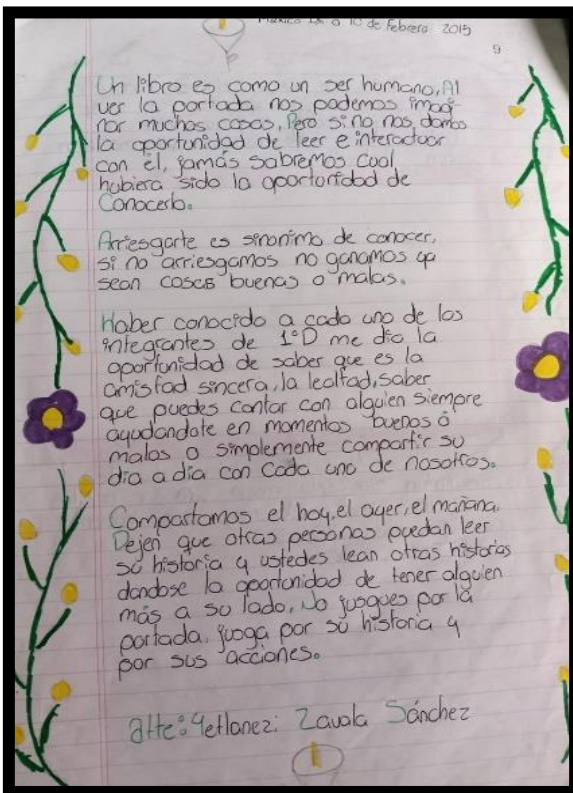 México a 10 de Febrero 2015
9
Un libro es como un ser humano, Al
ver la portada nos podemos imagi-
nar muchas cosas, Pero si no nos damos
la oportunidad de leer e interactuar
con él, jamás sabremos cual
hubiera sido la oportunidad de
Conocerlo.
Arriesgarte es sinonimo de conocer,
si no arriesgamos no ganamos ya
sean cosas buenas o malas.
Haber conocido a cada uno de los
integrantes de 1°D me dio la
oportunidad de saber que es la
amistad sincera, la lealtad, saber
que puedes contar con alguien siempre
ayudandote en momentos buenos o
malos o simplemente compartir su
dia a dia con Cada uno de nosotros.
Compartamos el hoy, el ayer, el mañana.
Dejen que otras personas puedan leer
su historia y ustedes lean otras historias
dandose la oportunidad de tener alguien
más a su lado, No jusgues por la
portada, jusga por su historia y
por sus acciones.
atte: Yetlanezi Zavala Sánchez